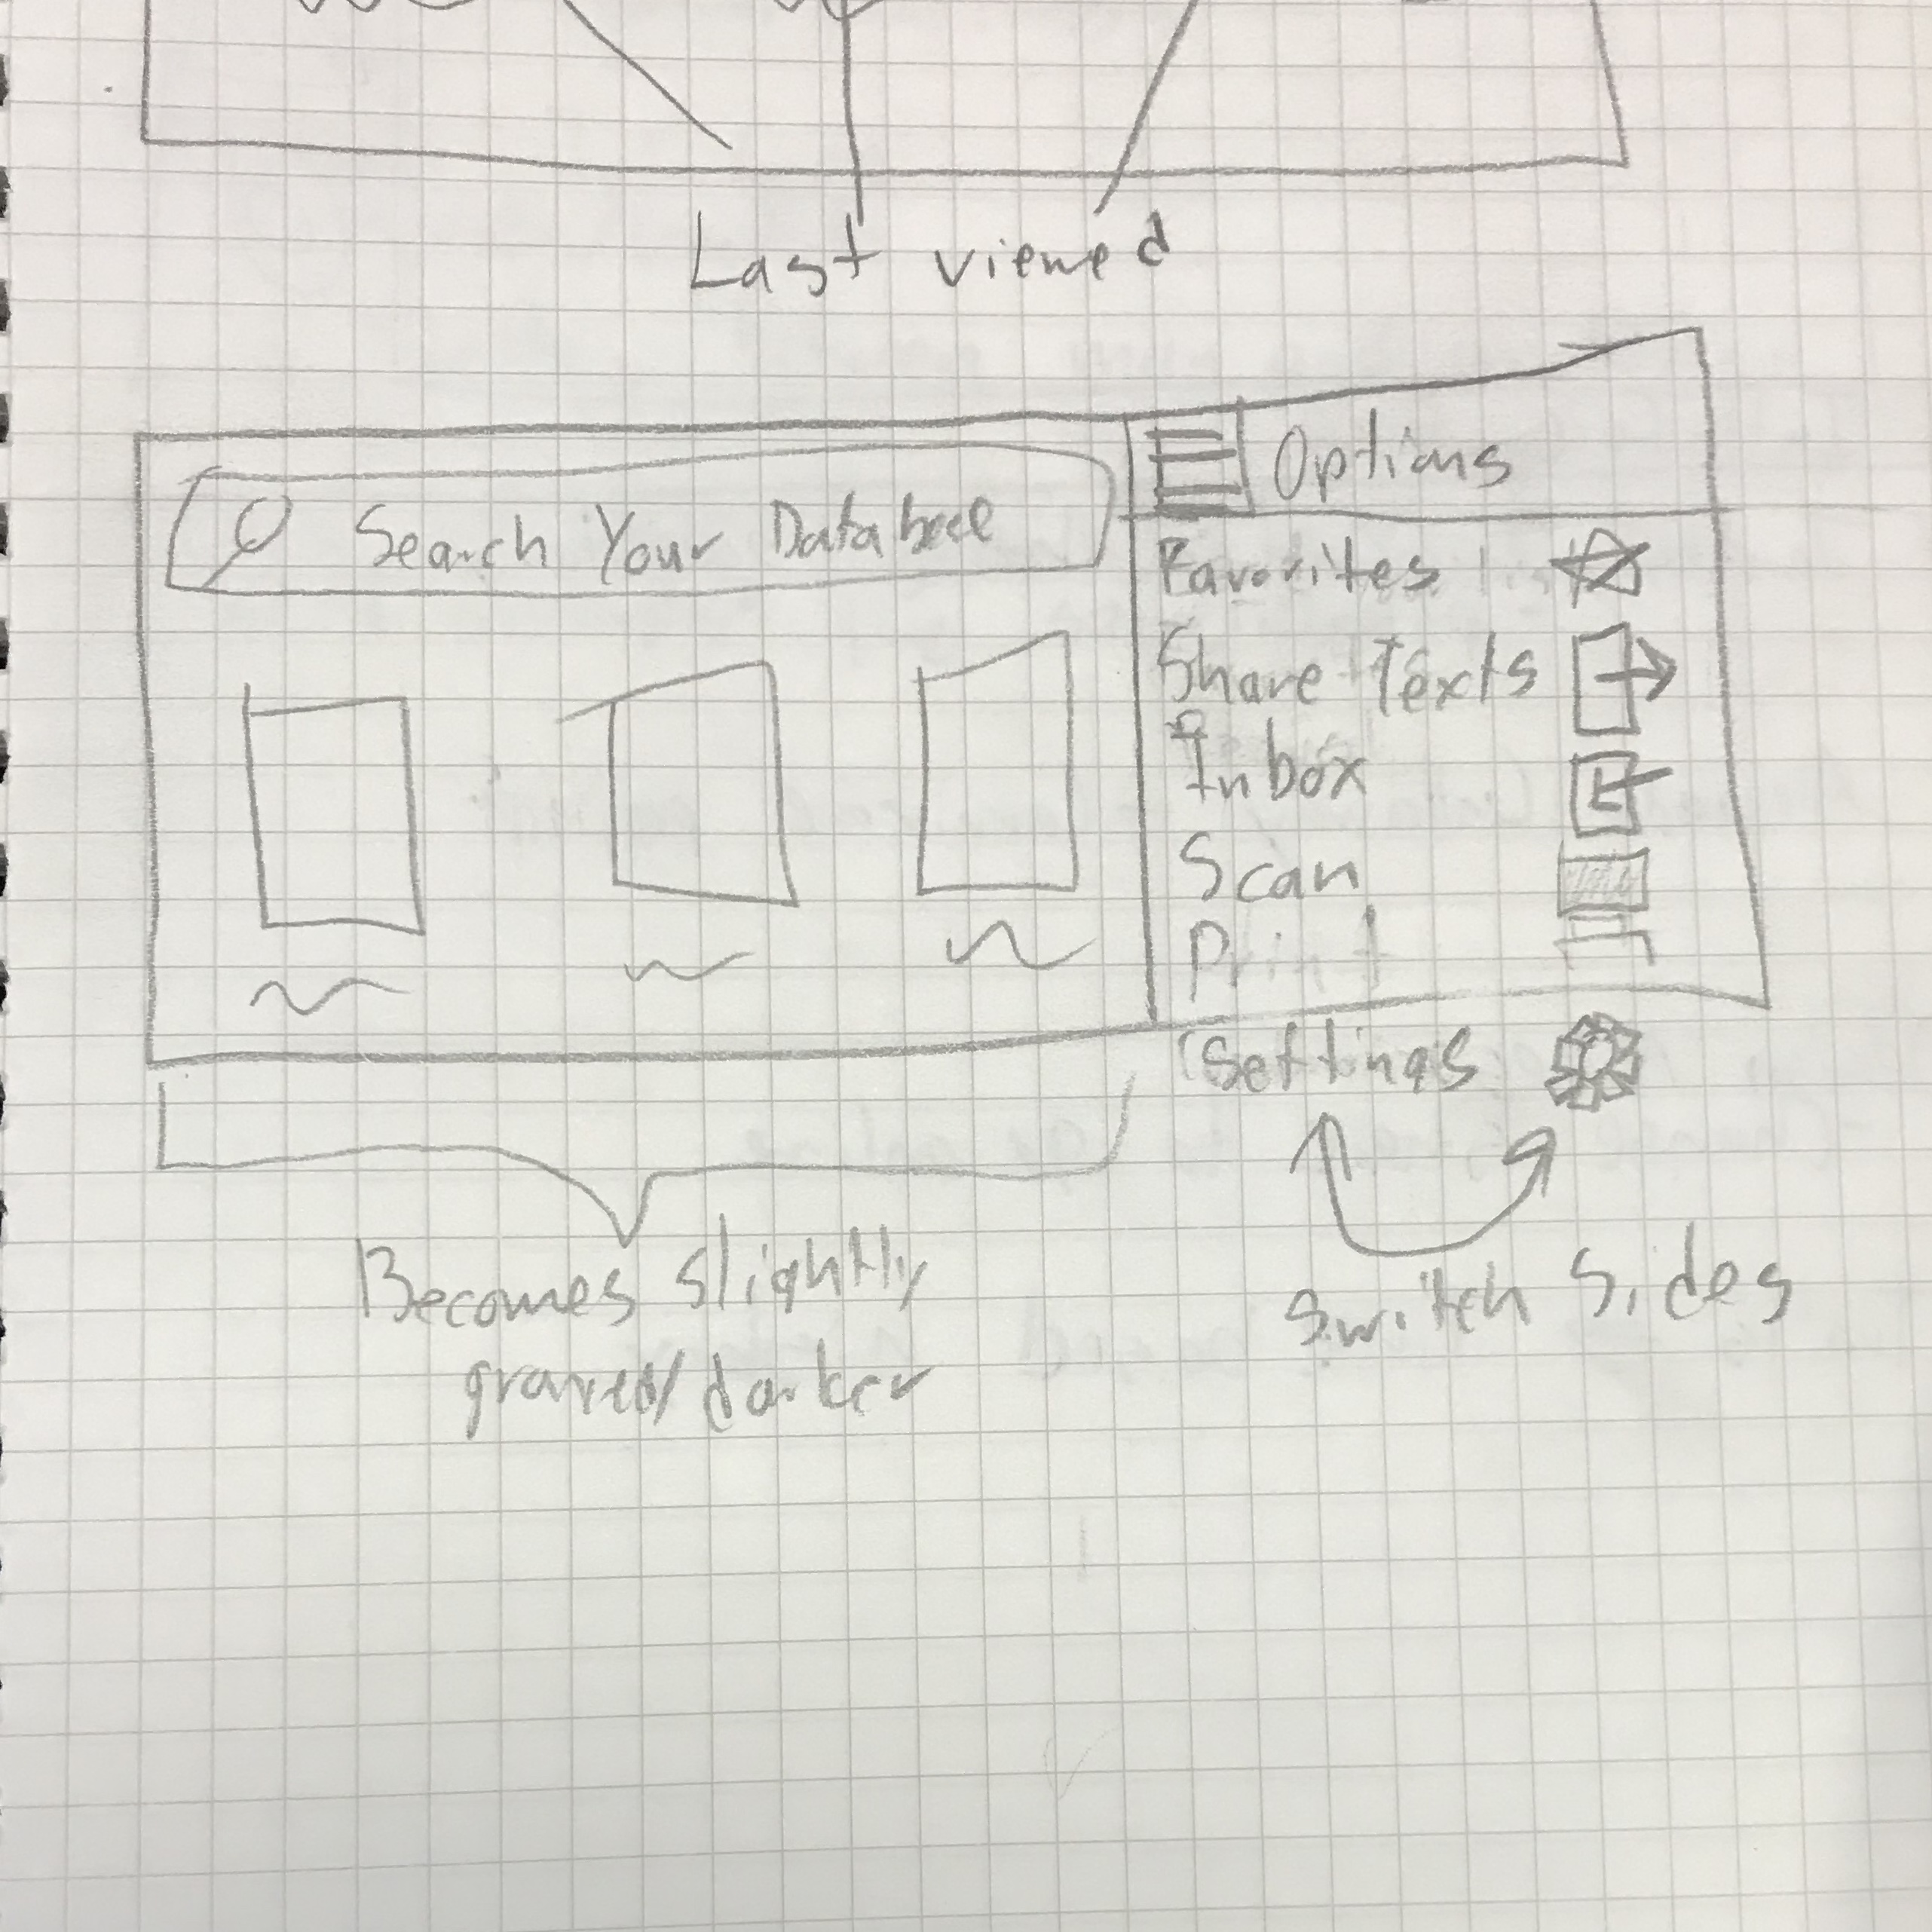 Last viewed
Options
Search Your Database
Favorites
Share Texts
Inbox
Scan
Print
Settings
Becomes slightly
grayed/darker
Switch Sides